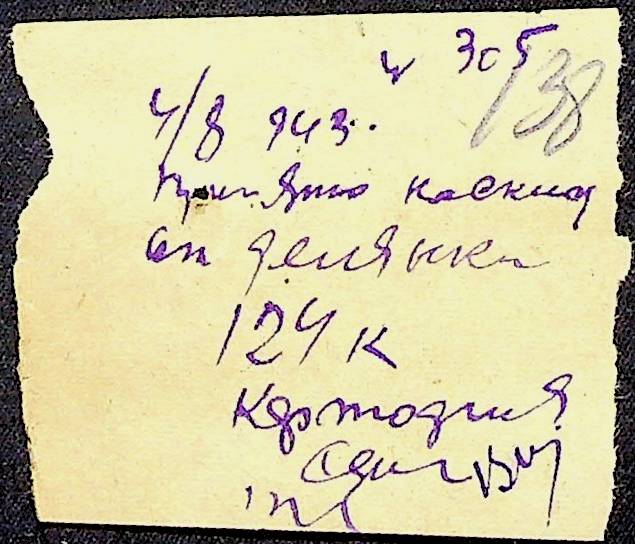 ч 305
138
4/8 943.
Принято на склад
от делянки
124 к
Картофля